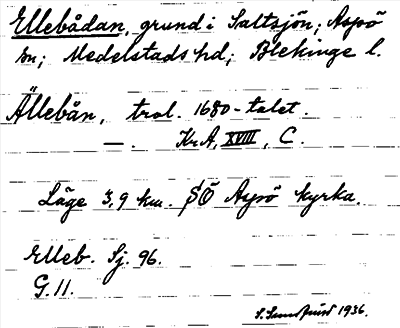 Ellebådan, grund i Saltsjön; Aspö
sn; Medelstads hd; Blekinge l.
Ällebån, trol. 1680-talet.
—. KrA, XVIII, C.
Läge 3,9 km. SÖ Aspö kyrka.
Elleb. Sj. 96.
G. 11.
S. Sundquist 1936.